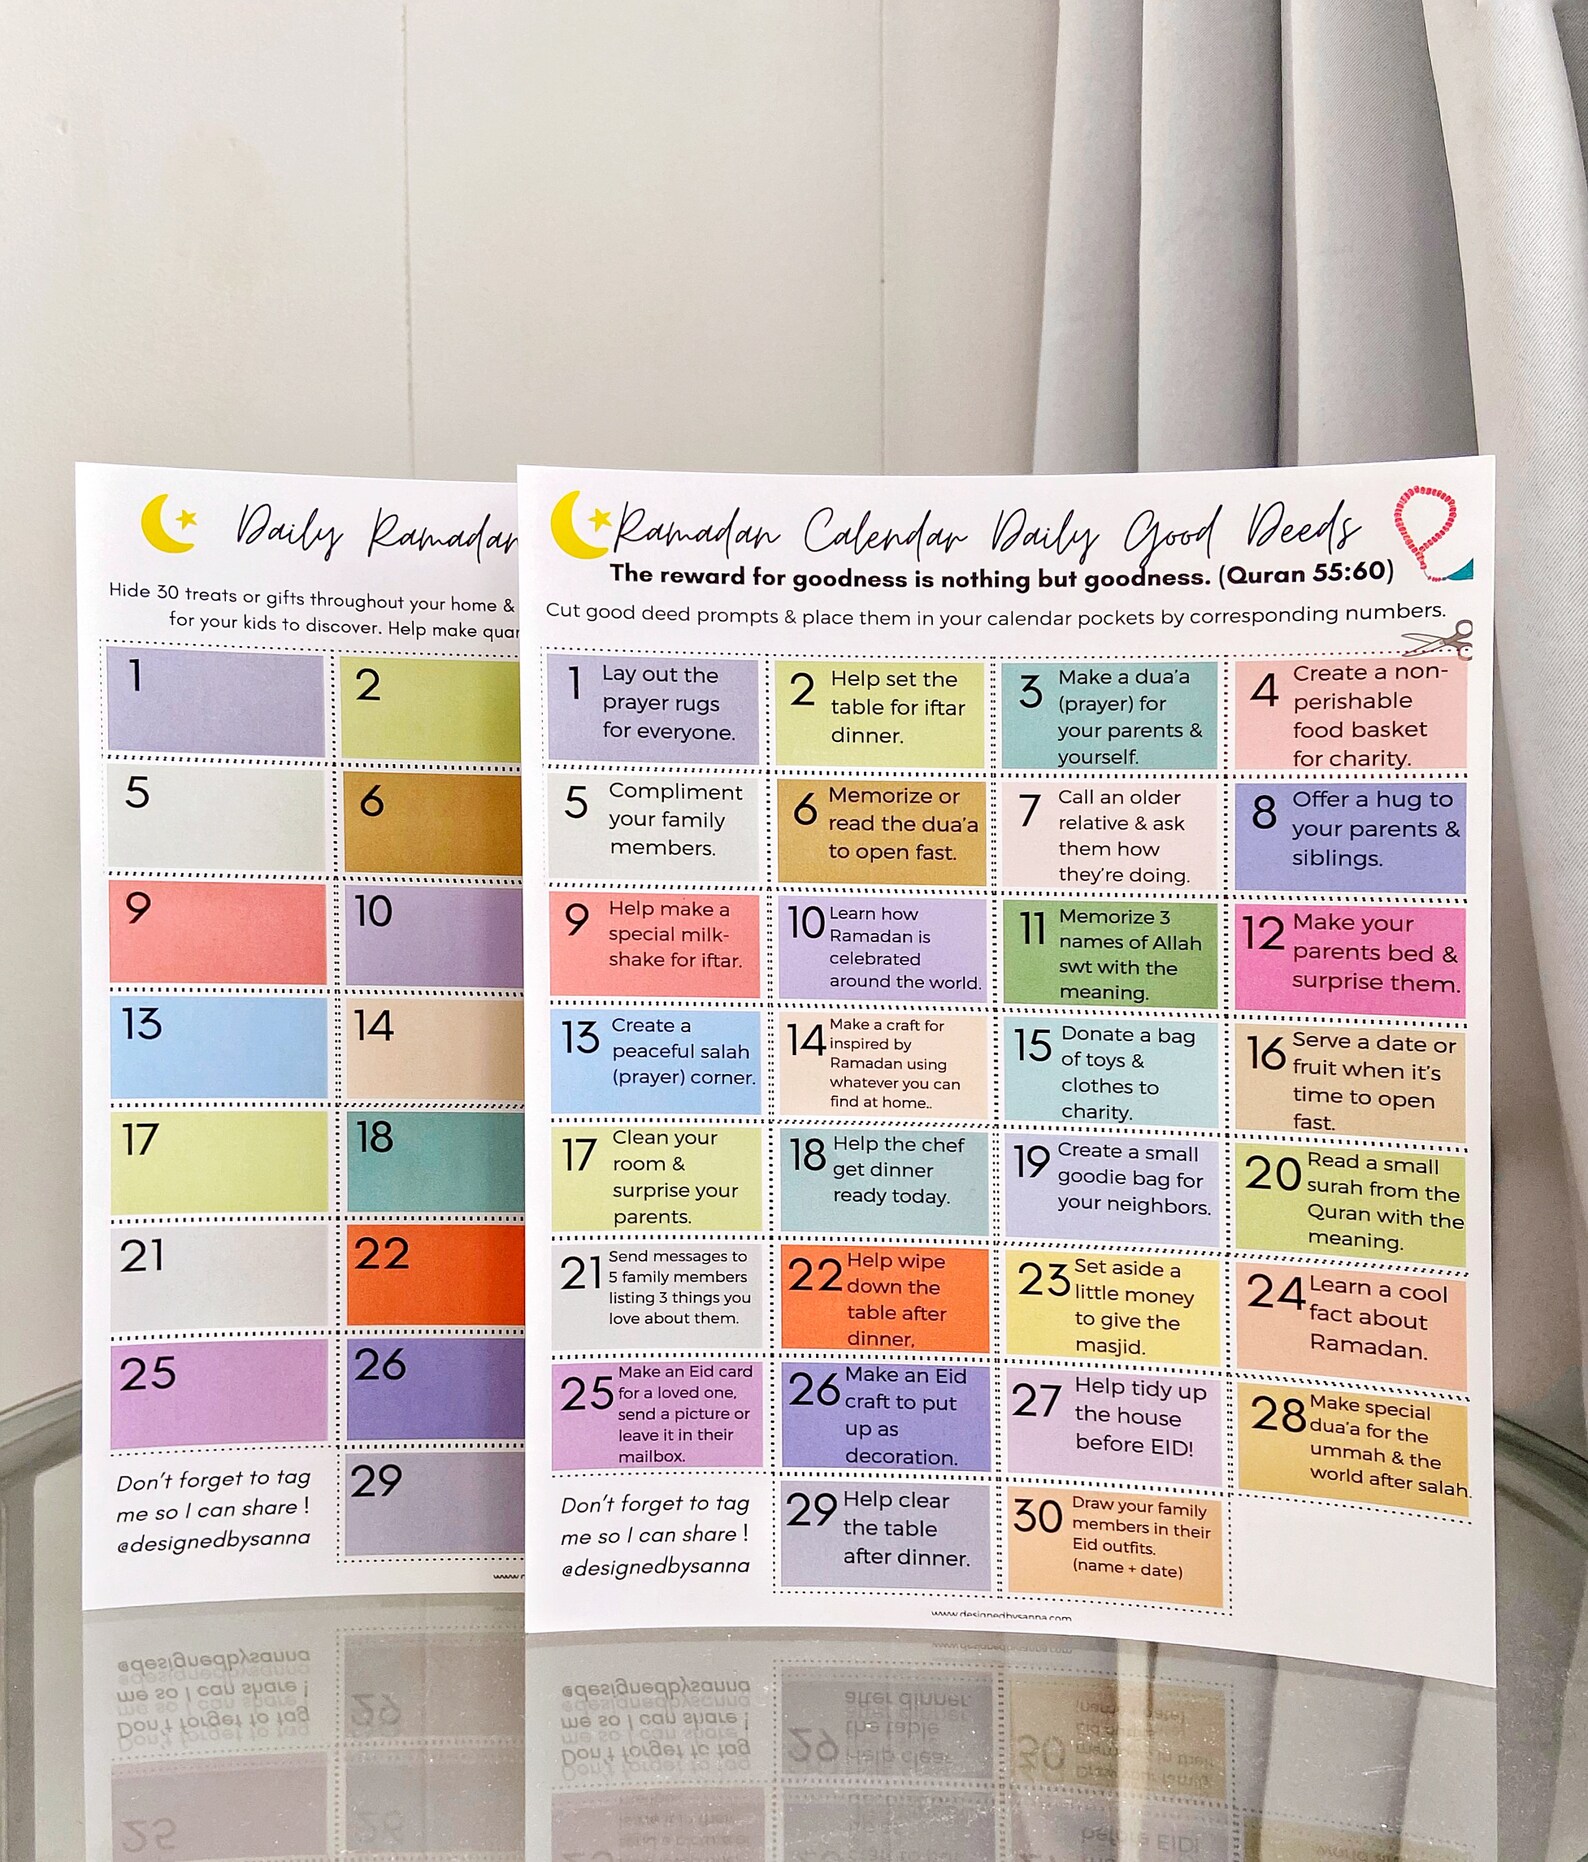 Daily Ramadan
Hide 30 treats or gifts throughout your home &
for your kids to discover. Help make
1
2
5
6
9
10
13
14
17
18
21
22
25
26
Don't forget to tag
me so I can share !
@designedbysanna
29
Ramadan Calendar Daily Good Deeds
The reward for goodness is nothing but goodness. (Quran 55:60)
Cut good deed prompts & place them in your calendar pockets by corresponding numbers.
1
Lay out the
prayer rugs
for everyone.
2
Help set the
table for iftar
dinner.
3
Make a dua'a
(prayer) for
your parents &
yourself.
4
Create a non-
perishable
food basket
for charity.
5
Compliment
your family
members.
6
Memorize or
read the dua'a
to open fast.
7
Call an older
relative & ask
them how
they're doing.
8
Offer a hug to
your parents &
siblings.
9
Help make a
special milk-
shake for iftar.
10
Learn how
Ramadan is
celebrated
around the world.
11
Memorize 3
names of Allah
swt with the
meaning.
12
Make your
parents bed &
surprise them.
13
Create a
peaceful salah
(prayer) corner.
14
Make a craft for
inspired by
Ramadan using
whatever you can
find at home..
15
Donate a bag
of toys &
clothes to
charity.
16
Serve a date or
fruit when it's
time to open
fast.
17
Clean your
room &
surprise your
parents.
18
Help the chef
get dinner
ready today.
19
Create a small
goodie bag for
your neighbors.
20
Read a small
surah from the
Quran with the
meaning.
21
Send messages to
5 family members
listing 3 things you
love about them.
22
Help wipe
down the
table after
dinner,
23
Set aside a
little money
to give the
masjid.
24
Learn a cool
fact about
Ramadan.
25
Make an Eid card
for a loved one,
send a picture or
leave it in their
mailbox.
26
Make an Eid
craft to put
up as
decoration.
27
Help tidy up
the house
before EID!
28
Make special
dua'a for the
ummah & the
world after salah.
Don't forget to tag
me so I can share !
@designedbysanna
29
Help clear
the table
after dinner.
30
Draw your family
members in their
Eid outfits.
(name + date)
www.designedbysanna.com